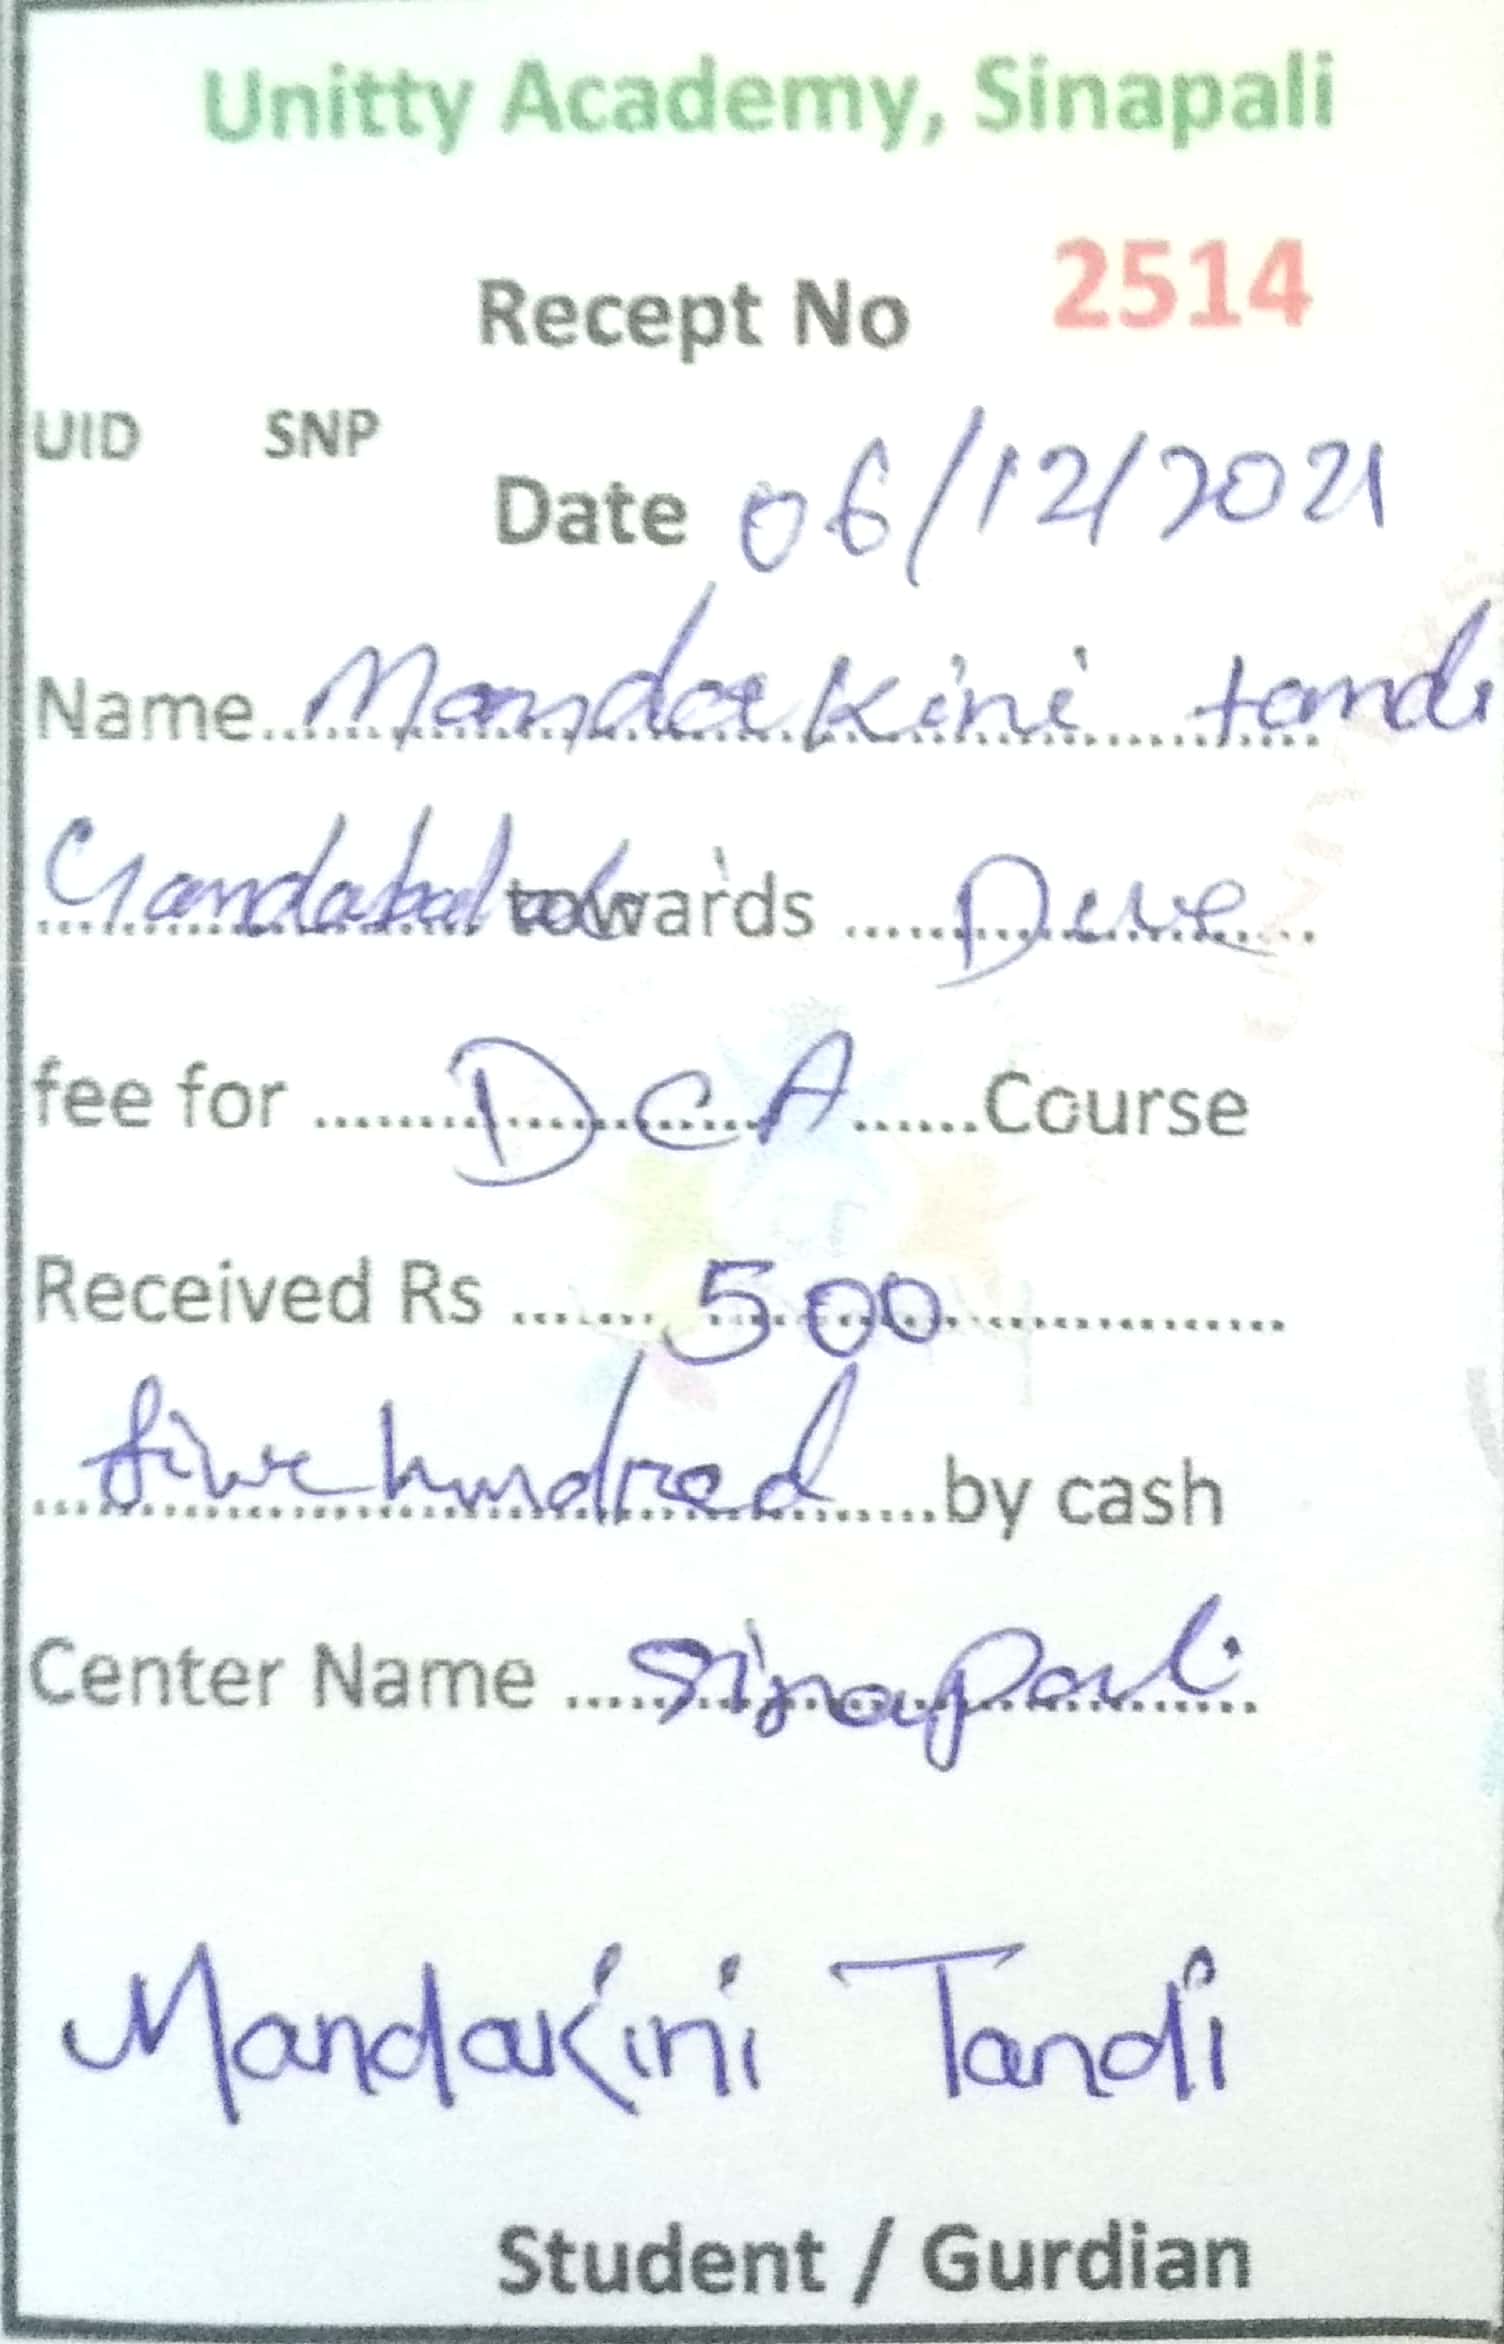 Unitty Academy, Sinapali
Recept No 2514
UID SNP
Date 06/12/2021
Name Mandakini tandi
towards Due
fee for DCA Course
Received Rs 500
five hundred by cash
Center Name Sinapali
Mandakini Tandi
Student / Gurdian